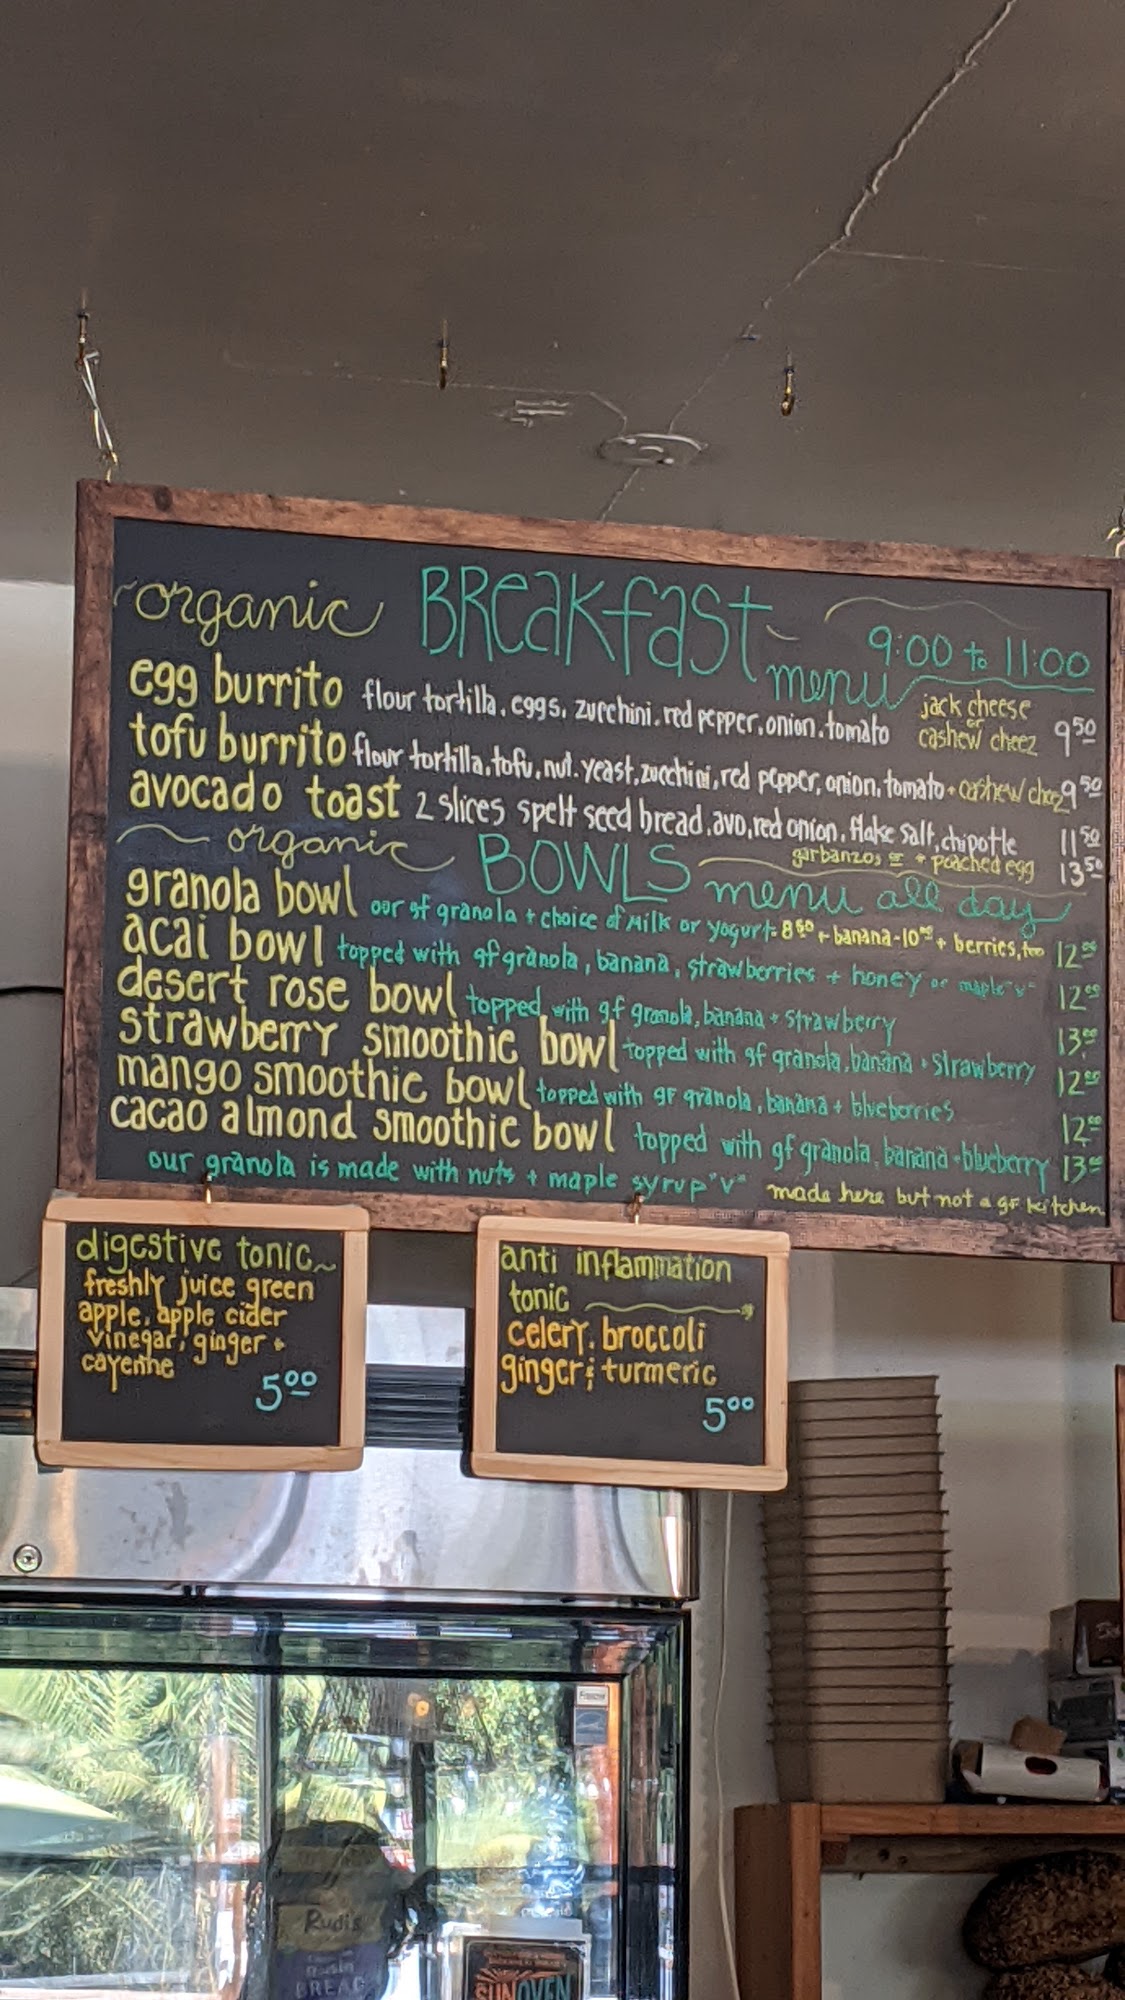 ~organic BREAKfAST~ menu 9:00 to 11:00
egg burrito flour tortilla, eggs, zucchini, red pepper, onion, tomato jack cheese or cashew cheez 9 50
tofu burrito flour tortilla, tofu, nut. yeast, zucchini, red pepper, onion, tomato + cashew cheez 9 50
avocado toast 2 slices spelt seed bread, avo, red onion, flake salt, chipotle 11 50
garbanzos or + poached egg 13 50
organic BOWLS menu all day
granola bowl our gf granola + choice of milk or yogurt- 8 50 + banana - 10 00 + berries, too 12 00
acai bowl topped with gf granola, banana, strawberries + honey or maple "v" 12 00
desert rose bowl topped with gf granola, banana + strawberry 13 00
strawberry smoothie bowl topped with gf granola, banana + strawberry 12 00
mango smoothie bowl topped with gf granola, banana + blueberries 12 00
cacao almond smoothie bowl topped with gf granola, banana + blueberry 13 00
our granola is made with nuts + maple syrup "v" made here but not a gf kitchen
digestive tonic~
freshly juice green
apple, apple cider
vinegar, ginger +
cayenne
5 00
anti inflammation
tonic
celery, broccoli
ginger & turmeric
5 00
Rudi's
raisin
BREAD
SUN OVEN